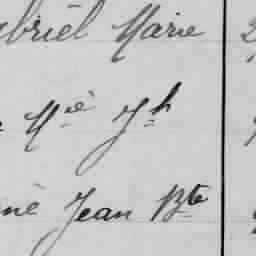 abriel Marie
Mie Jh
né Jean Bte